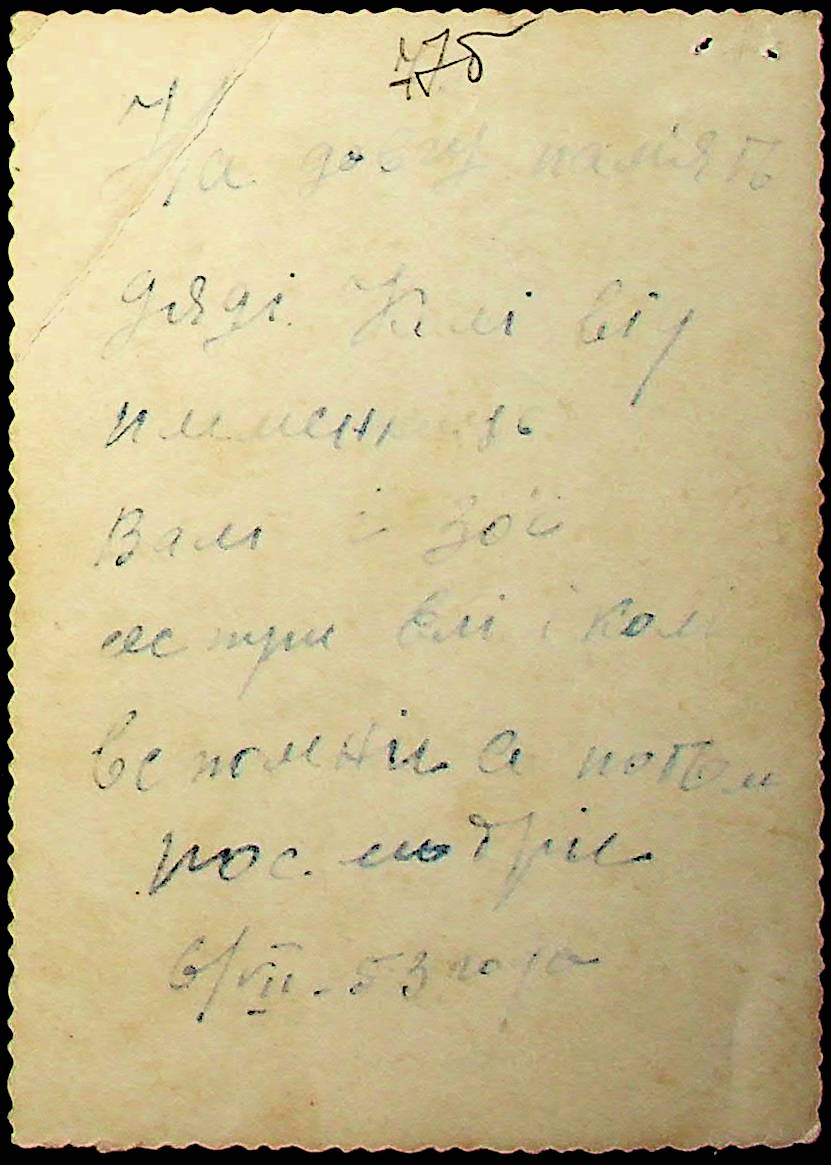 775
На добру памʼять
дяді Колі від
племениць
Валі і Зої
сестри Єлі і Колі
вспомніш а потом
посмотріш
6/VII-53 года